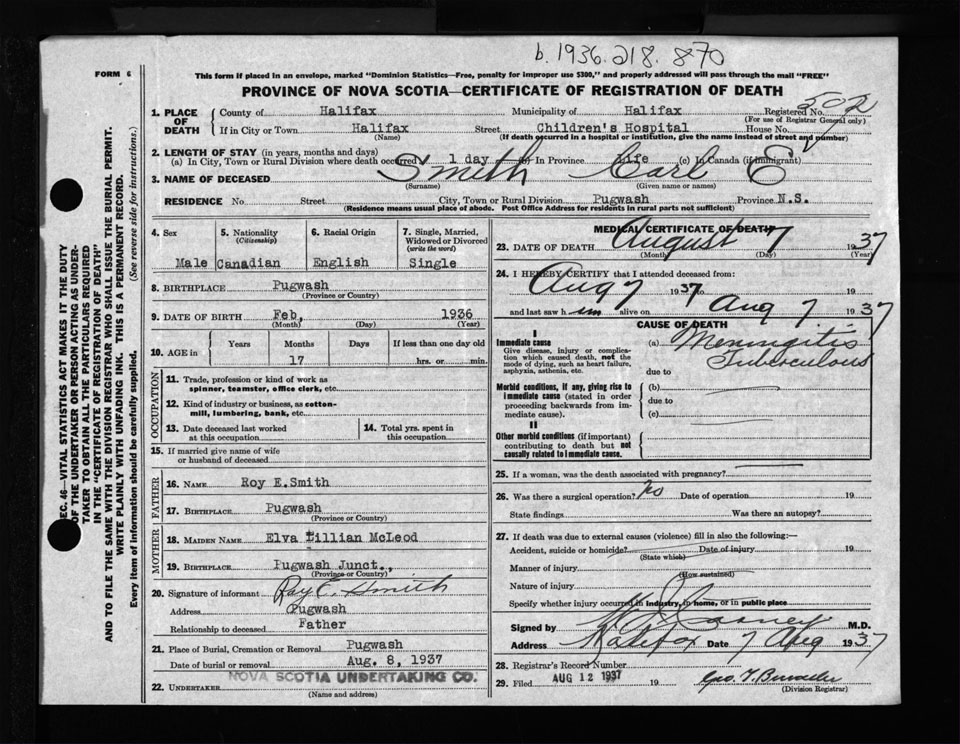 b. 1936. 218. 870
FORM 6
This form if placed in an envelope, marked "Dominion Statistics—Free, penalty for improper use $300," and properly addressed will pass through the mail "FREE"
PROVINCE OF NOVA SCOTIA—CERTIFICATE OF REGISTRATION OF DEATH
1. PLACE OF DEATH
County of Halifax Municipality of Halifax Registered No. 502
(For use of Registrar General only)
If in City or Town Halifax Street Children's Hospital House No.
(Name) (If death occurred in a hospital or institution, give the name instead of street and number)
2. LENGTH OF STAY (in years, months and days)
(a) In City, Town or Rural Division where death occurred 1 day (b) In Province Life (c) In Canada (if immigrant)
3. NAME OF DECEASED Smith Carl E
(Surname) (Given name or names)
RESIDENCE No. Street City, Town or Rural Division Pugwash Province N.S.
(Residence means usual place of abode. Post Office Address for residents in rural parts not sufficient)
4. Sex 5. Nationality (Citizenship) 6. Racial Origin 7. Single, Married, Widowed or Divorced (write the word)
Male Canadian English Single
8. BIRTHPLACE Pugwash
(Province or Country)
9. DATE OF BIRTH Feb, 1936
(Month) (Day) (Year)
10. AGE in Years Months Days If less than one day old
17 hrs. or min.
OCCUPATION
11. Trade, profession or kind of work as spinner, teamster, office clerk, etc.
12. Kind of industry or business, as cotton-mill, lumbering, bank, etc.
13. Date deceased last worked at this occupation
14. Total yrs. spent in this occupation
15. If married give name of wife or husband of deceased
FATHER
16. NAME Roy E.Smith
17. BIRTHPLACE Pugwash
(Province or Country)
MOTHER
18. MAIDEN NAME Elva Lillian McLeod
19. BIRTHPLACE Pugwash Junct.,
(Province or Country)
20. Signature of informant Roy E. Smith
Address Pugwash
Relationship to deceased Father
21. Place of Burial, Cremation or Removal Pugwash
Date of burial or removal Aug. 8, 1937
22. UNDERTAKER NOVA SCOTIA UNDERTAKING CO.
(Name and address)
MEDICAL CERTIFICATE OF DEATH
23. DATE OF DEATH August 7 1937
(Month) (Day) (Year)
24. I HEREBY CERTIFY that I attended deceased from:
Aug 7 1937 19
and last saw him alive on Aug 7 1937
CAUSE OF DEATH
I
Immediate cause
Give disease, injury or complication which caused death, not the mode of dying, such as heart failure, asphyxia, asthenia, etc.
(a) Meningitis
Tuberculous
due to
Morbid conditions, if any, giving rise to immediate cause (stated in order proceeding backwards from immediate cause).
(b)
due to
(c)
II
Other morbid conditions (if important) contributing to death but not causally related to immediate cause.
25. If a woman, was the death associated with pregnancy?
26. Was there a surgical operation? No Date of operation 19
State findings Was there an autopsy?
27. If death was due to external causes (violence) fill in also the following:—
Accident, suicide or homicide? Date of injury 19
(State which)
Manner of injury
(How sustained)
Nature of injury
Specify whether injury occurred in industry, in home, or in public place
Signed by M.D.
Address Halifax Date 7 Aug 1937
28. Registrar's Record Number
29. Filed AUG 12 1937 19
(Division Registrar)
SEC. 46—VITAL STATISTICS ACT MAKES IT THE DUTY
OF THE UNDERTAKER OR PERSON ACTING AS UNDER-
TAKER TO OBTAIN ALL THE PARTICULARS REQUIRED
IN THE "CERTIFICATE OF REGISTRATION OF DEATH"
AND TO FILE THE SAME WITH THE DIVISION REGISTRAR WHO SHALL ISSUE THE BURIAL PERMIT.
WRITE PLAINLY WITH UNFADING INK. THIS IS A PERMANENT RECORD.
Every item of information should be carefully supplied. (See reverse side for instructions.)